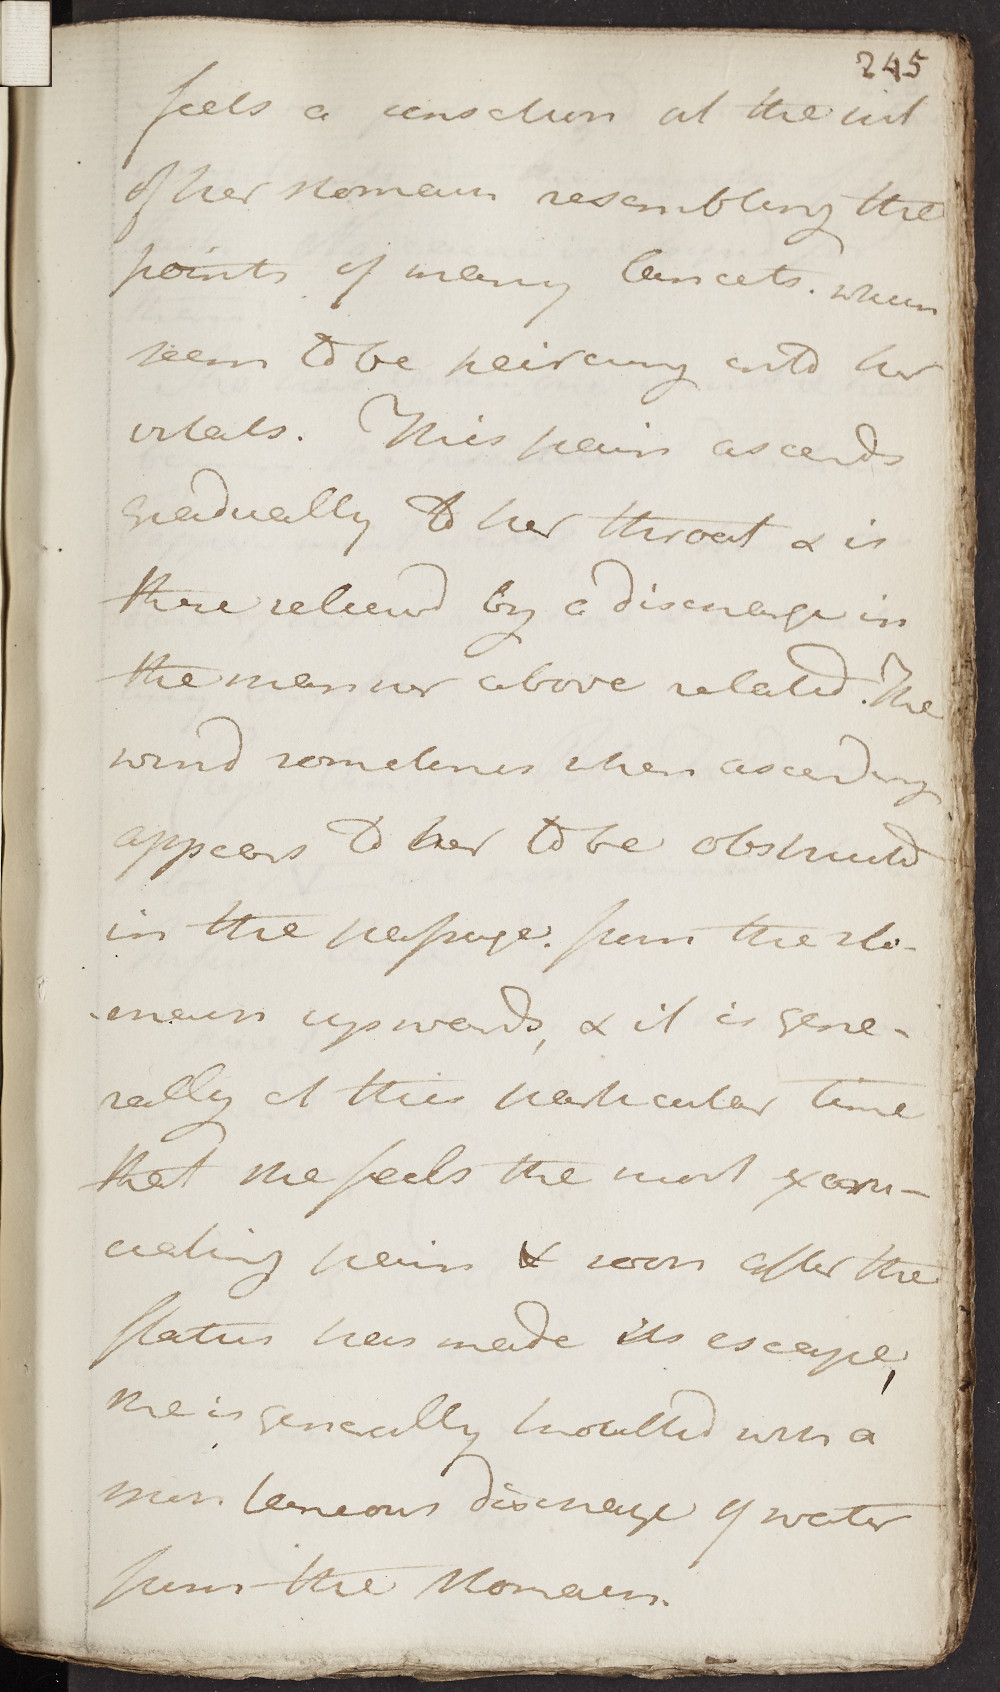 245
feels a sensation at the pit
of her stomach resembling the
points of many lancets. which
seem to be peircing into her
vitals. This pain ascends
gradually to her throat & is
there releived by a discharge in
the manner above related. The
wind sometimes when ascending
appears to her to be obstructed
in the passage. from the sto-
-mach upwards, & it is gene-
rally at this particular time
that she feels the most excru-
ciating pain & soon after the
flatus has made its escape,
she is generally troubled with a
spontaneous discharge of water
from the stomach.